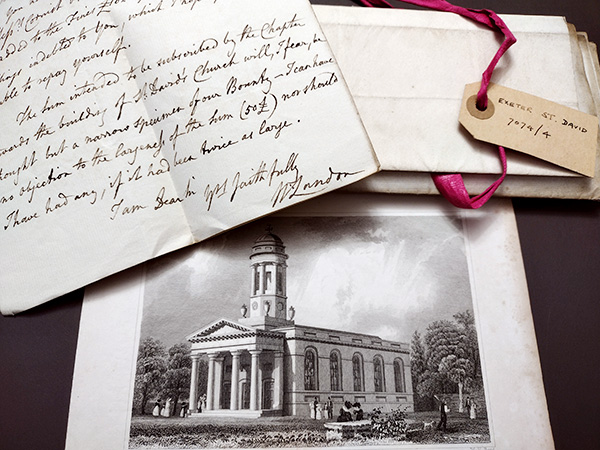 You a
Mess.rs Cornish
added to the Fines
perhaps indebted to you, which I hope
able to repay yourself.
The sum intended to be subscribed by the Chapter
towards the building of St. Davids Church will, I fear, be
thought but a narrow specimen of our Bounty – I can have
no objection to the largeness of the sum (50£) nor should
I have had any, if it had been twice as large.
I am Dear Sir Yrs faithfully
W. London
EXETER ST. DAVID
7074/4